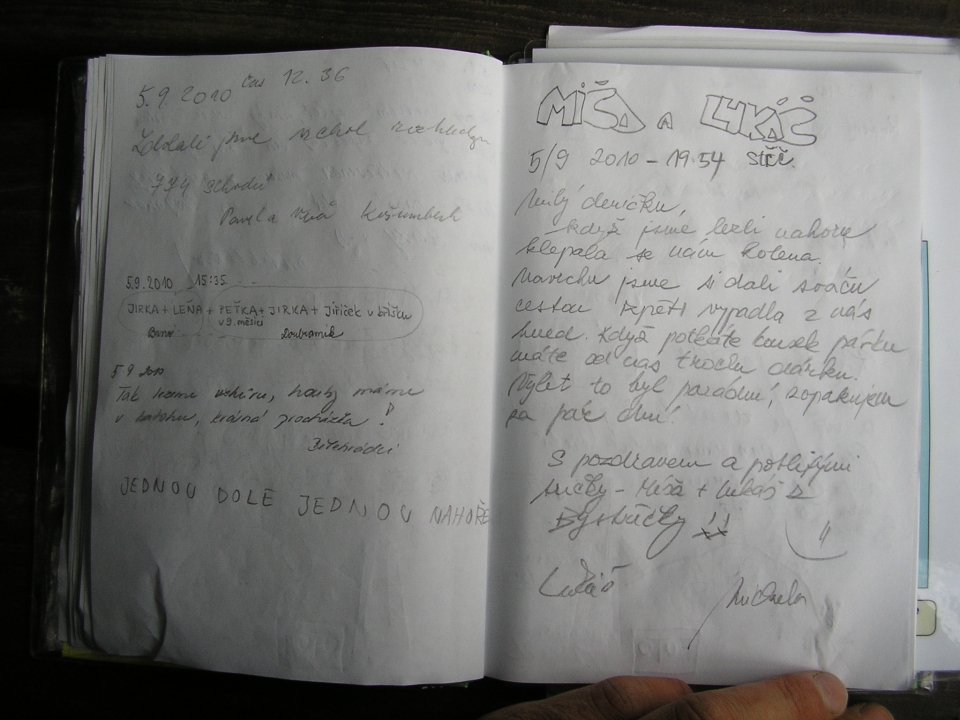 5.9 2010 čas 12.36
Zdolali jsme vchol rozhledny
774 schodů
Pavel a Košumberk
5.9.2010 15:35
JIRKA + LEŇA + PEŤKA + JIRKA + Jiříček v bříšku
v 9. měsíci
Brno Doubravník
5 9 2010
Tak hurá, houby máme
v batohu, krásná procházka!
JEDNOU DOLE JEDNOU NAHOŘE
MÍŠA A LUKÁŠ
5/9 2010 - 19:54
Milý deníčku,
když jsme lezli nahoru
klepala se nám kolena.
Navrchu jsme si dali sváču
cestou zpěti vypadla z nás
hned. Když potkáte kousek párku
máte od nás trochu dárku.
Výlet to byl parádní, zopakujem
za pár dní!
S pozdravem a
- Míša + Lukáš z
Bystričky !!
Lukáš
Michaela